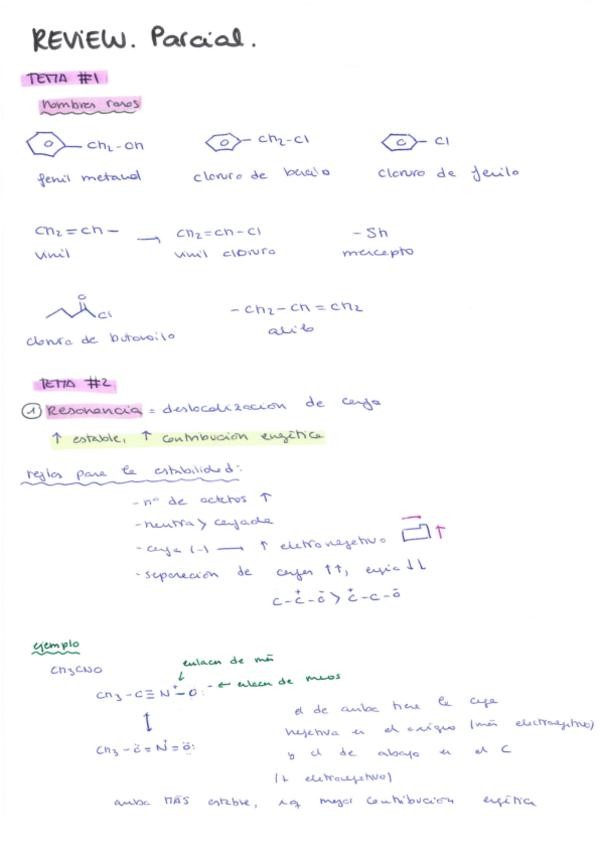 REVIEW. Parcial.
TEMA #1
Nombres raros
CH2-OH CH2-Cl Cl
fenil metanol cloruro de bencilo cloruro de fenilo
CH2=CH- → CH2=CH-Cl -SH
vinil vinil cloruro mercapto
O
Cl -CH2-CH=CH2
cloruro de butanoilo alilo
TEMA #2
① Resonancia = deslocalización de carga
↑ estable, ↑ contribución engética
reglas para la estabilidad:
- nº de octetos ↑
- neutra > cargada
- carga (-) → ↑ eletronegativo ↑
- separación de cargas ↑↑, ergia ↓↓
C-C⁺-O⁻ > C⁺-C-O⁻
ejemplo
CH3CNO
enlaces de más
CH3-C≡N⁺-O:⁻ ← enlaces de menos
↕
CH3-C̈=N⁺=Ö:
el de arriba tiene la carga
negativa en el oxígeno (más electronegativo)
y el de abajo en el C
(↓ eletronegativo)
arriba MÁS estable, mayor contribución ergética